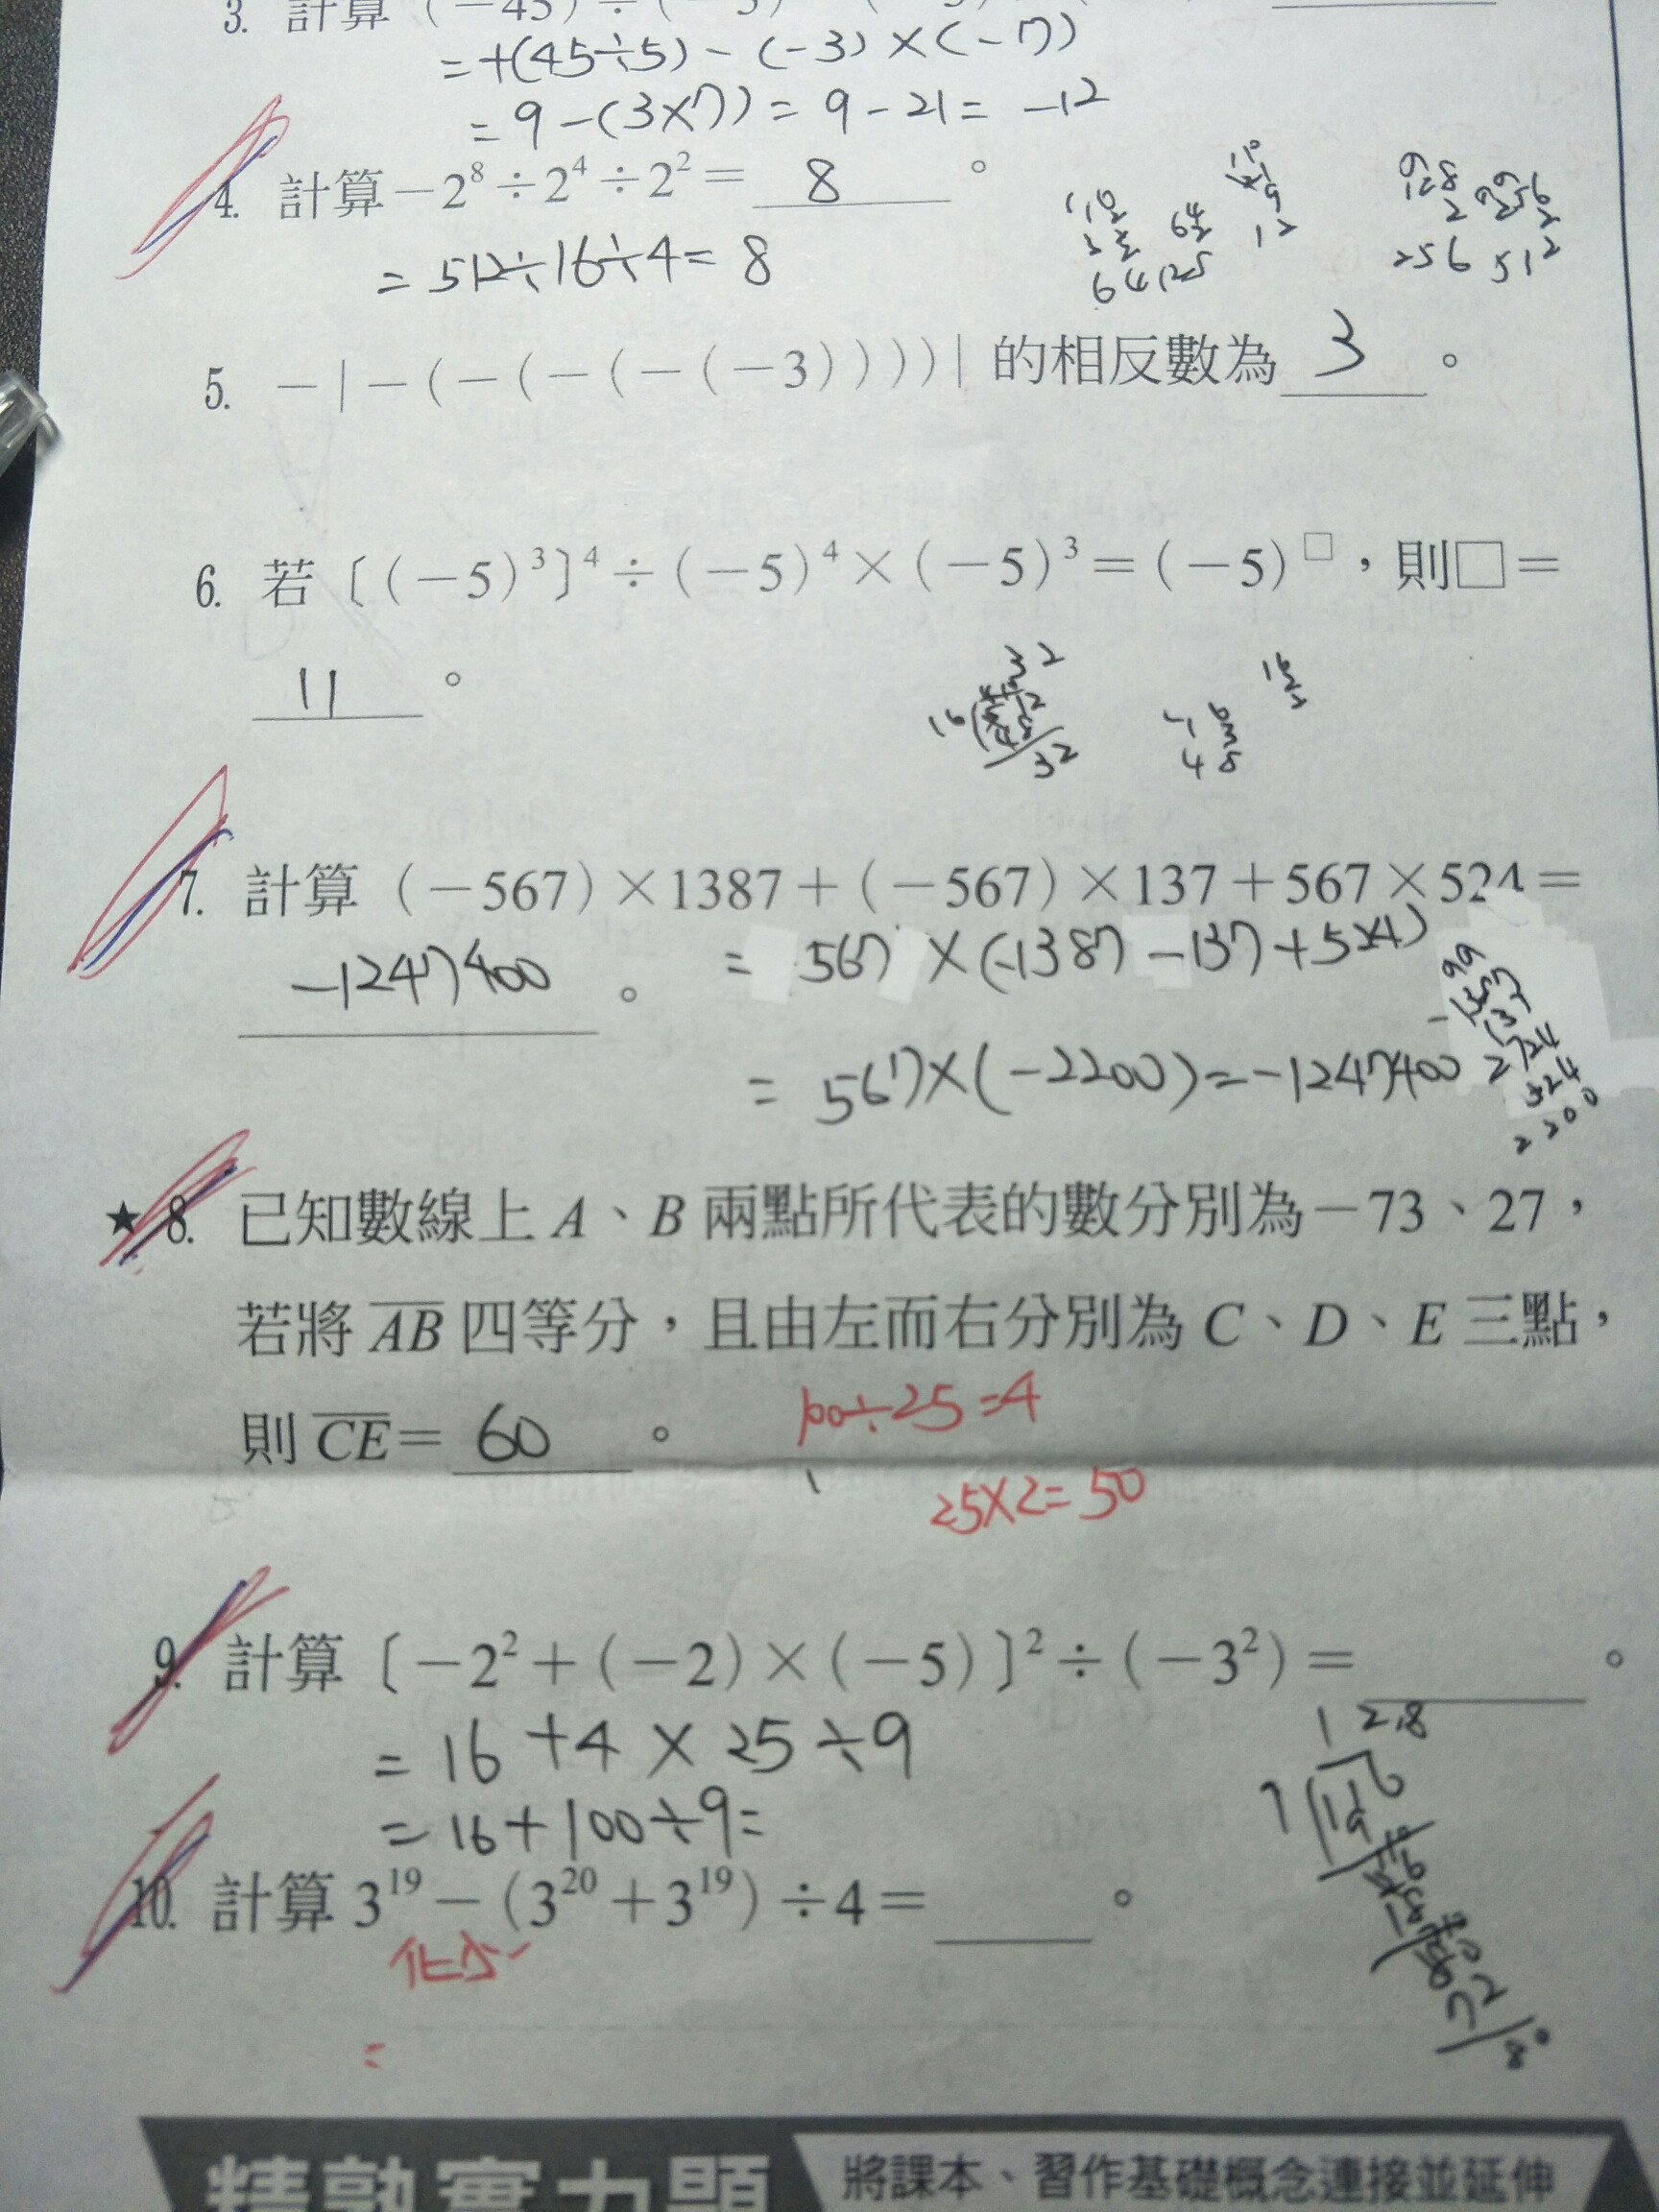 3. 計算(-45)÷(-5)
=+(45÷5)-(-3)×(-7)
=9-(3×7)=9-21=-12
4. 計算-2⁸÷2⁴÷2²= 8 。
=512÷16÷4=8
128 2 256
256 2 512
5. -|-(-(-(-(-3))))|的相反數為 3 。
6. 若〔(-5)³〕⁴÷(-5)⁴×(-5)³=(-5)□,則□=
11 。
7. 計算(-567)×1387+(-567)×137+567×524=
-1247400 。 = 567×(-1387-137+524)
= 567×(-2200)=-1247400
★8. 已知數線上A、B兩點所代表的數分別為-73、27,
若將AB四等分,且由左而右分別為C、D、E三點,
則CE= 60 。 100÷25=4
25×2=50
9. 計算〔-2²+(-2)×(-5)〕²÷(-3²)= 。
=16+4×25÷9
=16+100÷9=
10. 計算3¹⁹-(3²⁰+3¹⁹)÷4= 。
=
精熟實力題 將課本、習作基礎概念連接並延伸